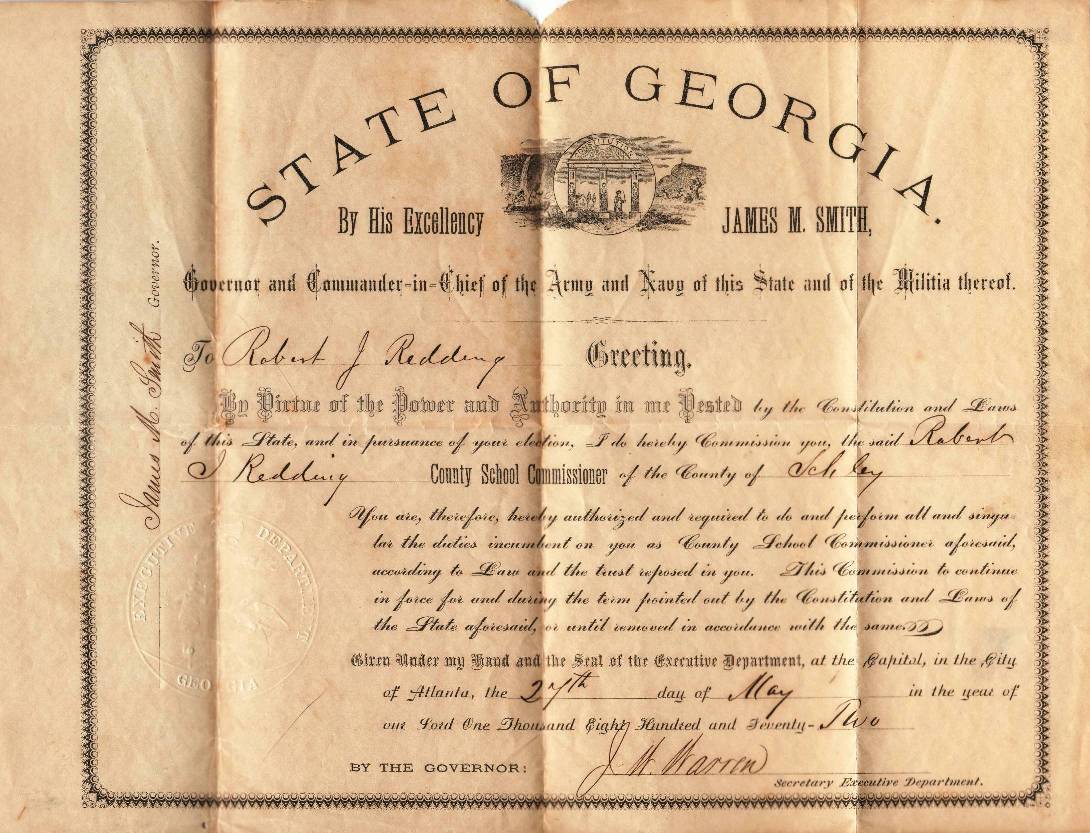 STATE OF GEORGIA.
CONSTITUTION
By His Excellency JAMES M. SMITH,
Governor and Commander-in-Chief of the Army and Navy of this State and of the Militia thereof.
To Robert J Redding Greeting.
By Virtue of the Power and Authority in me Vested by the Constitution and Laws
of this State, and in pursuance of your election, I do hereby Commission you, the said Robert
J Redding County School Commissioner of the County of Schley
You are, therefore, hereby authorized and required to do and perform all and singu-
lar the duties incumbent on you as County School Commissioner aforesaid,
according to Law and the trust reposed in you. This Commission to continue
in force for and during the term pointed out by the Constitution and Laws of
the State aforesaid, or until removed in accordance with the same.
Given Under my Hand and the Seal of the Executive Department, at the Capitol, in the City
of Atlanta, the 27th day of May in the year of
our Lord One Thousand Eight Hundred and Seventy-Two
BY THE GOVERNOR: J. W. Warren
Secretary Executive Department.
James M. Smith Governor.
EXECUTIVE DEPARTMENT
GEORGIA